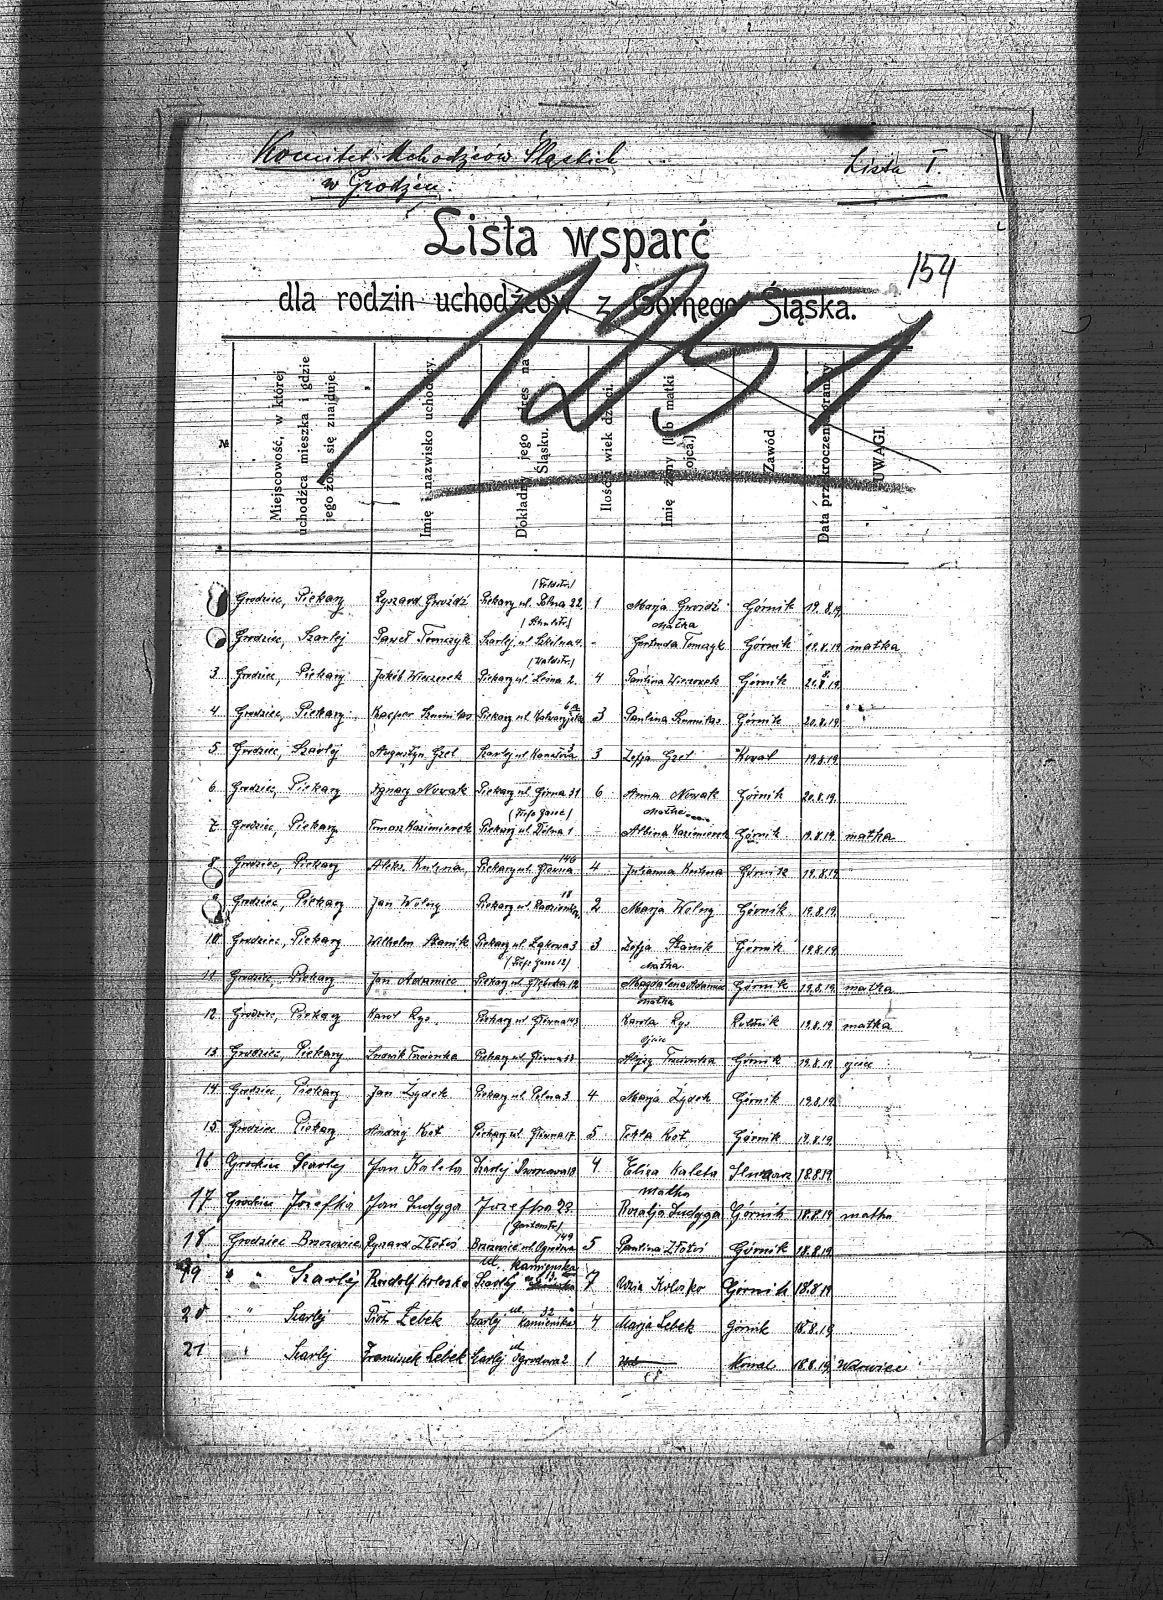 Komitet Uchodźców Śląskich
w Grodźcu.
Lista I.
Lista wsparć
154
dla rodzin uchodźców z Górnego Śląska.
1251
№
Miejscowość, w której uchodźca mieszka i gdzie jego żona się znajduje.
Imię i nazwisko uchodźcy.
Dokładny jego adres na Śląsku.
Ilość i wiek dzieci.
Imię żony (lub matki ojca.)
Zawód
Data przekroczenia granicy.
UWAGI.
Grodziec, Piekary Ryszard Gwóźdź Piekary ul. Polna 22 1 Marja Gwóźdź Górnik 19.8.19
Matka
Grodziec, Szarlej Paweł Tomczyk Szarlej ul Szkolna 4. - Gertruda Tomczyk Górnik 19.8.19 matka
3 Grodziec, Piekary Jakób Wieczorek Piekary ul. Leśna 2. 4 Paulina Wieczorek Górnik 20.8.19
4 Grodziec, Piekary Kacper Piekary ul 3 Paulina Górnik 20.8.19
5 Grodziec, Szarlej Augustyn Gzel Szarlej ul 3 Zofja Gzel Kowal 19.8.19
6 Grodziec, Piekary Ignacy Nowak Piekary ul Górna 31 6 Anna Nowak Górnik 20.8.19.
Matka
7 Grodziec, Piekary Tomasz Kazimierek Piekary ul Dolna 1 Albina Kazimierek Górnik 19.8.19 matka
8 Grodziec, Piekary Piekary ul. Główna 146 4 Julianna Górnik 19.8.19
9 Grodziec, Piekary Jan Wolny Piekary ul. 18 2 Marja Wolny Górnik 19.8.19
10 Grodziec, Piekary Wilhelm Piekary ul. Łąkowa 3 3 Zofja Górnik 19.8.19
(Tiefe Gasse 12) Matka
11 Grodziec, Piekary Jan Adamiec Piekary ul. Głęboka 12 Magdalena Adamiec Górnik 19.8.19 matka
matka
12 Grodziec, Piekary Karol Rys. Piekary ul Główna Karola Rys 19.8.19 matka
ojciec
13 Grodziec, Piekary Piekary ul Główna Górnik 19.8.19 ojciec
14 Grodziec, Piekary Jan Żydek Piekary ul Polna 3 4 Marja Żydek Górnik 19.8.19
15 Grodziec Piekary Andrzej Kot Piekary ul. Główna 17 5 Tekla Kot Górnik 19.8.19
16 Grodziec Szarlej Jan Kaleta Szarlej Dworcowa 18 4 Eliza Kaleta 18.8.19
Matka
17 Grodziec Józefka Jan Ludyga Józefka 22. Rozalja Ludyga Górnik 18.8.19 matka
(Gartenstr) 149
18 Grodziec Brzozowice Ryszard Złotoś Brzozowice ul. Ogrodowa 5 Paulina Złotoś Górnik 18.8.19
ul. Kamieńska
19 " " Szarlej Rudolf Kolosko Szarlej 7 Kolosko Górnik 18.8.19
20 " Szarlej Piotr Lebek Szarlej ul. Kamieńska 32 4 Marja Lebek Górnik 18.8.19
21 " Szarlej Franciszek Lebek Szarlej ul Ogrodowa 2 1 Kowal 18.8.19 Wdowiec